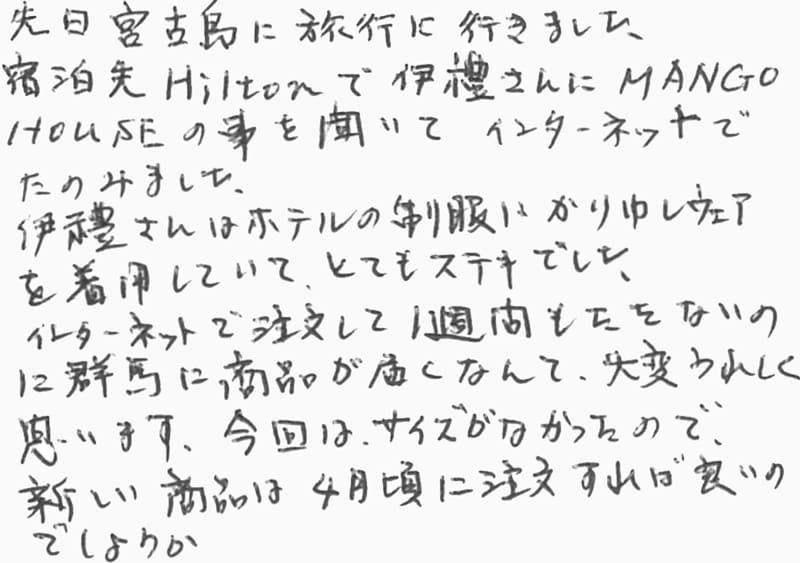 先日宮古島に旅行に行きました、
宿泊先Hiltonで伊禮さんにMANGO
HOUSEの事を聞いてインターネットで
たのみました、
伊禮さんはホテルの制服にかりゆしウェア
を着用していて、とてもステキでした、
インターネットで注文して1週間もたたないの
に群馬に商品が届くなんて、大変うれしく
思います、今回は、サイズがなかったので、
新しい商品は4月頃に注文すれば良いの
でしょうか